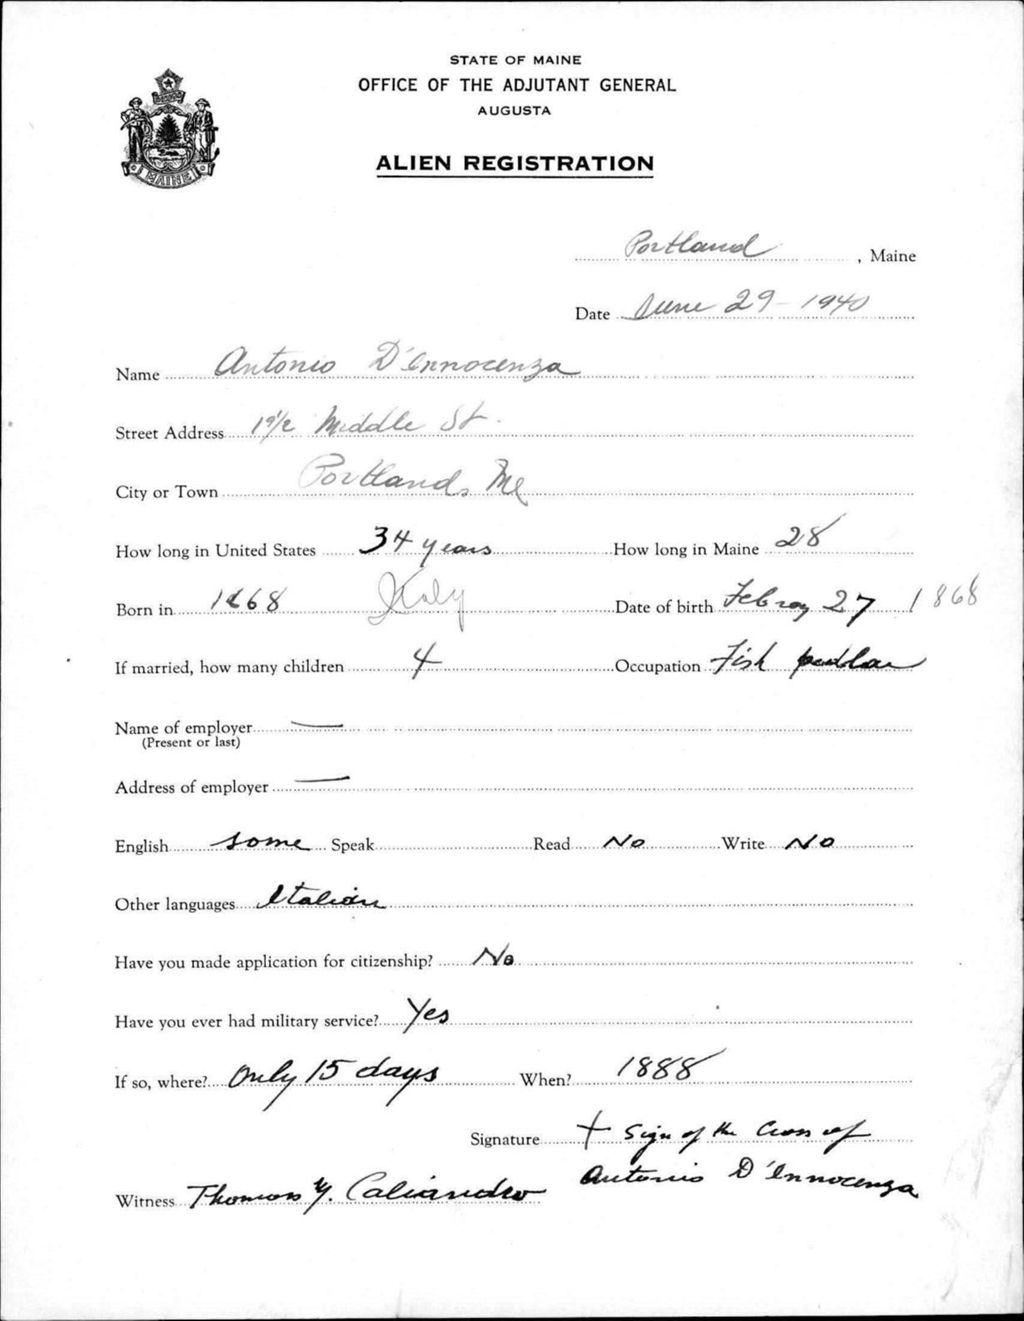 STATE OF MAINE
OFFICE OF THE ADJUTANT GENERAL
AUGUSTA
ALIEN REGISTRATION
MAINE
Portland, Maine
Date June 29 - 1940
Name Antonio D'Innocenza
Street Address 19½ Middle St.
City or Town Portland, Me
How long in United States 34 years How long in Maine 28
Born in 1868 Italy Date of birth 27 1868
If married, how many children 4 Occupation Fish
Name of employer —
(Present or last)
Address of employer —
English some Speak Read No Write No
Other languages Italian
Have you made application for citizenship? No
Have you ever had military service? Yes
If so, where? Only 15 days When? 1888
Signature + Sign of the Cross of
Antonio D'Innocenza
Witness Thomas Y. Caliandro